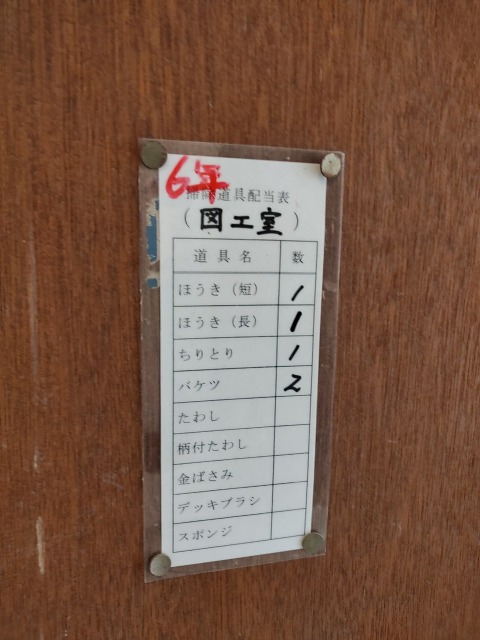 6年
掃除道具配当表
(図工室)
道具名 数
ほうき(短) 1
ほうき(長) 1
ちりとり 1
バケツ 2
たわし
柄付たわし
金ばさみ
デッキブラシ
スポンジ